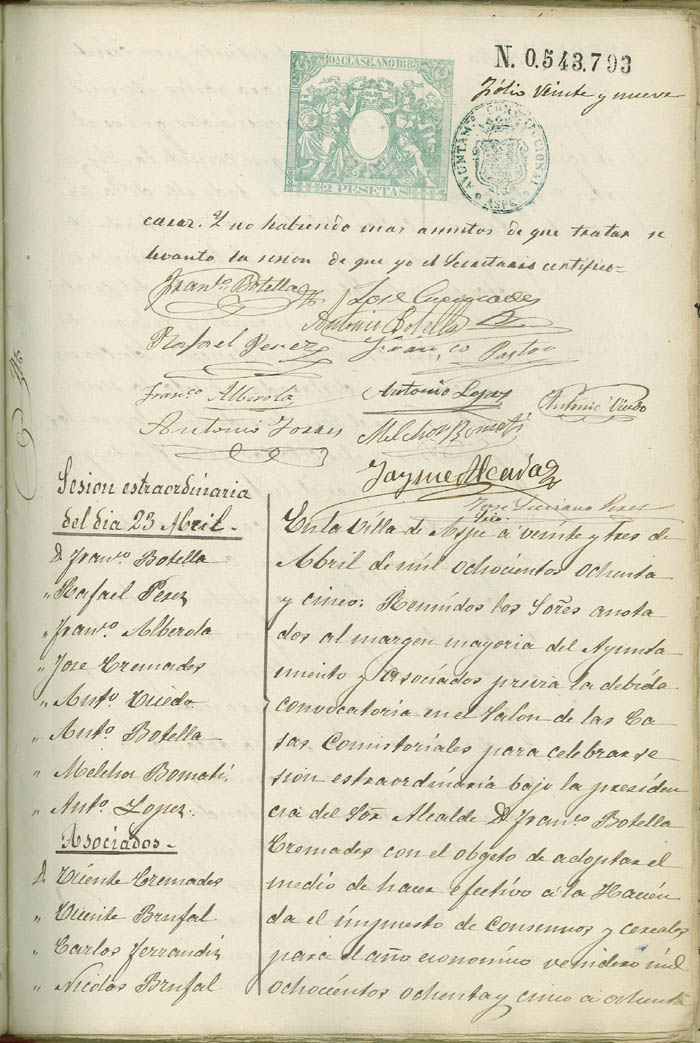 10A CLASE. AÑO 1885
2 PESETAS
N. 0.543.793
Fólio Veinte y nueve
AYUNTAM.º CONSTITUCIONAL
ASPE
casar. Y no habiendo mas asuntos de que tratar se
levanto la sesion de que yo el Secretario certifico=
Fran.co Botella
Jose Cremades
Antonio Botella
Rafael Perez
Fran.co Pastor
Fran.co Alberola
Antonio Lopez
Antonio
Antonio Torres
Melchor Bomati
Jayme Alcaraz
Jose Perez
Srio.
Sesion estraordinaria
del dia 23 Abril.
D. Fran.co Botella
" Rafael Perez
" Fran.co Alberola
" Jose Cremades
" Ant.o
" Ant.o Botella
" Melchor Bomatí
" Ant.o Lopez
Asociados
D. Vicente Cremades
" Vicente Brufal
" Carlos Ferrandiz
" Nicolas Brufal
En la Villa de Aspe á veinte y tres de
Abril de mil ochocientos ochenta
y cinco: Reunidos los Sores anota
dos al margen mayoria del Ayunta
miento y Asociados previa la debida
convocatoria en el Salon de las Ca
sas Consistoriales para celebrar se
sion estraordinaria bajo la presiden
cia del Sor Alcalde D. Fran.co Botella
Cremades con el objeto de adoptar el
medio de hacer efectivo á la Hacien
da el impuesto de Consumos y cereales
para el año economico venidero mil
ochocientos ochenta y cinco á ochenta